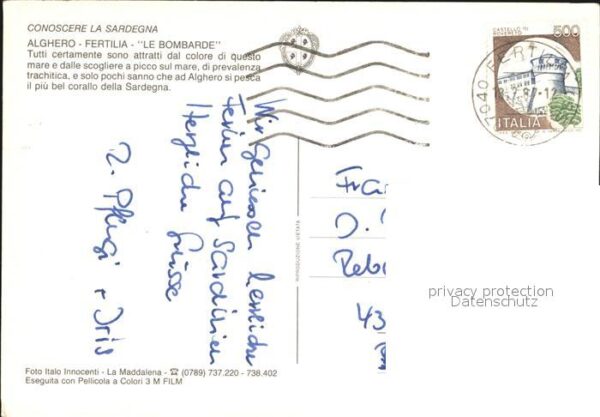 CONOSCERE LA SARDEGNA
ALGHERO - FERTILIA - "LE BOMBARDE"
Tutti certamente sono attratti dal colore di questo
mare e dalle scogliere a picco sul mare, di prevalenza
trachitica, e solo pochi sanno che ad Alghero si pesca
il più bel corallo della Sardegna.
CASTELLO DI
ROVERETO
500
ITALIA
Wir geniessen herrliche
Ferien auf Sardinien
Herzliche Grüsse
Iris
RIPRODUZIONE VIETATA
43
privacy protection
Datenschutz
Foto Italo Innocenti - La Maddalena - ☎ (0789) 737.220 - 738.402
Eseguita con Pellicola a Colori 3 M FILM